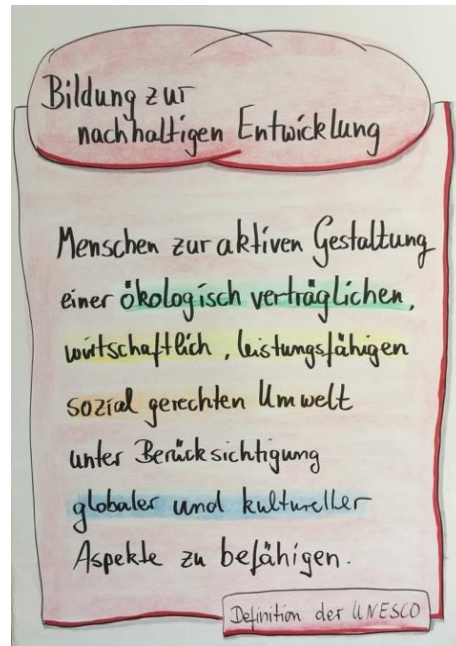 Bildung zur
nachhaltigen Entwicklung
Menschen zur aktiven Gestaltung
einer ökologisch verträglichen,
wirtschaftlich, leistungsfähigen
sozial gerechten Umwelt
unter Berücksichtigung
globaler und kultureller
Aspekte zu befähigen.
Definition der UNESCO